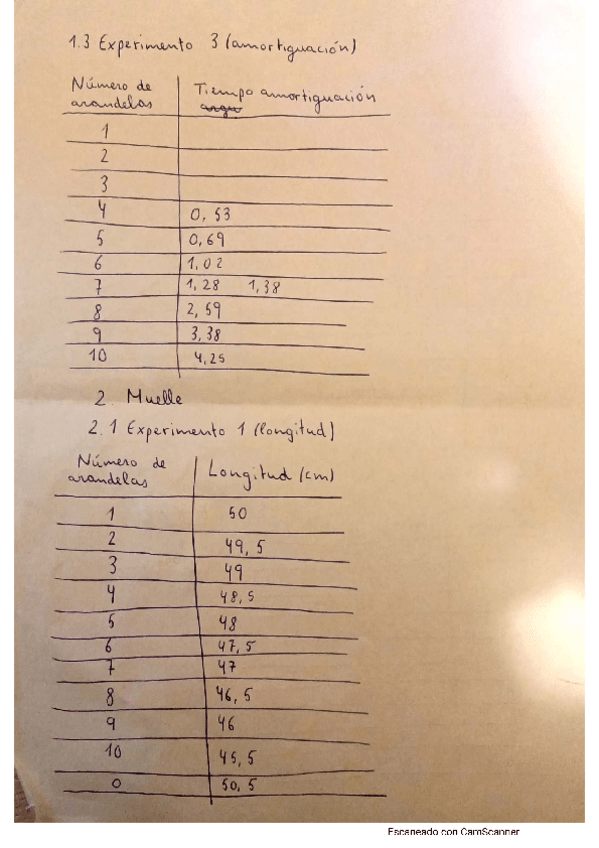 1.3 Experimento 3 (amortiguación)
Número de arandelas | Tiempo amortiguación
1
2
3
4 0,53
5 0,69
6 1,02
7 1,28 1,38
8 2,59
9 3,38
10 4,25
2. Muelle
2.1 Experimento 1 (longitud)
Número de arandelas | Longitud (cm)
1 50
2 49,5
3 49
4 48,5
5 48
6 47,5
7 47
8 46,5
9 46
10 45,5
0 50,5
Escaneado con CamScanner